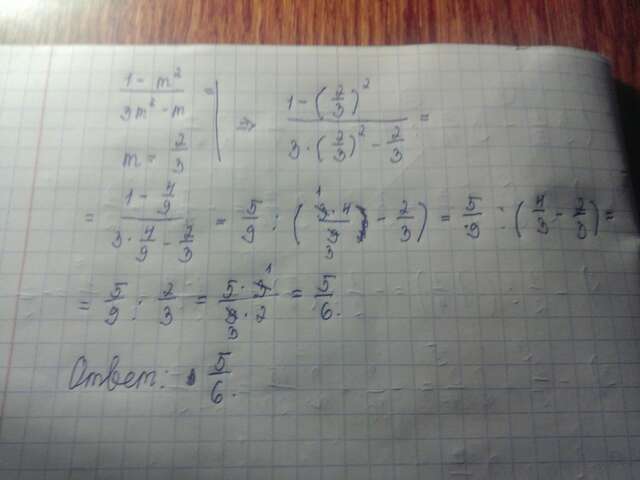 (1 - m²)/(3m² - m) =
m = 2/3
⇒ (1 - (2/3)²)/(3 · (2/3)² - 2/3) =
= (1 - 4/9)/(3 · 4/9 - 2/3) = 5/9 : (3 · 4/9 - 2/3) = 5/9 : (4/3 - 2/3) =
= 5/9 : 2/3 = (5 · 3)/(9 · 2) = 5/6.
Ответ: 5/6.